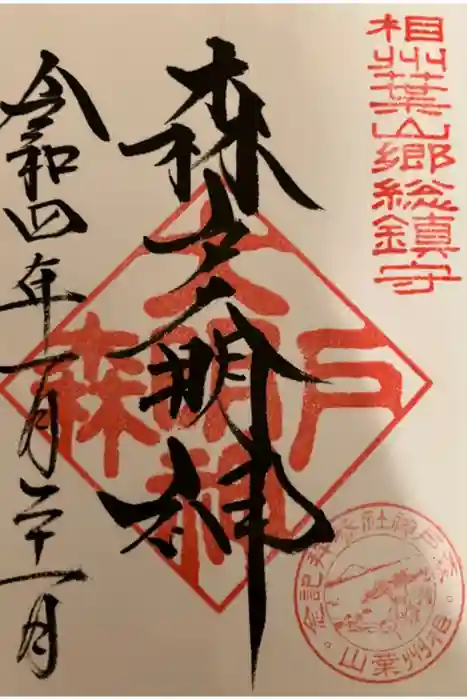 相州葉山郷総鎮守
森戸大明神
森戸大明神
令和四年一月二十一日
森戸神社参拝記念
相州葉山